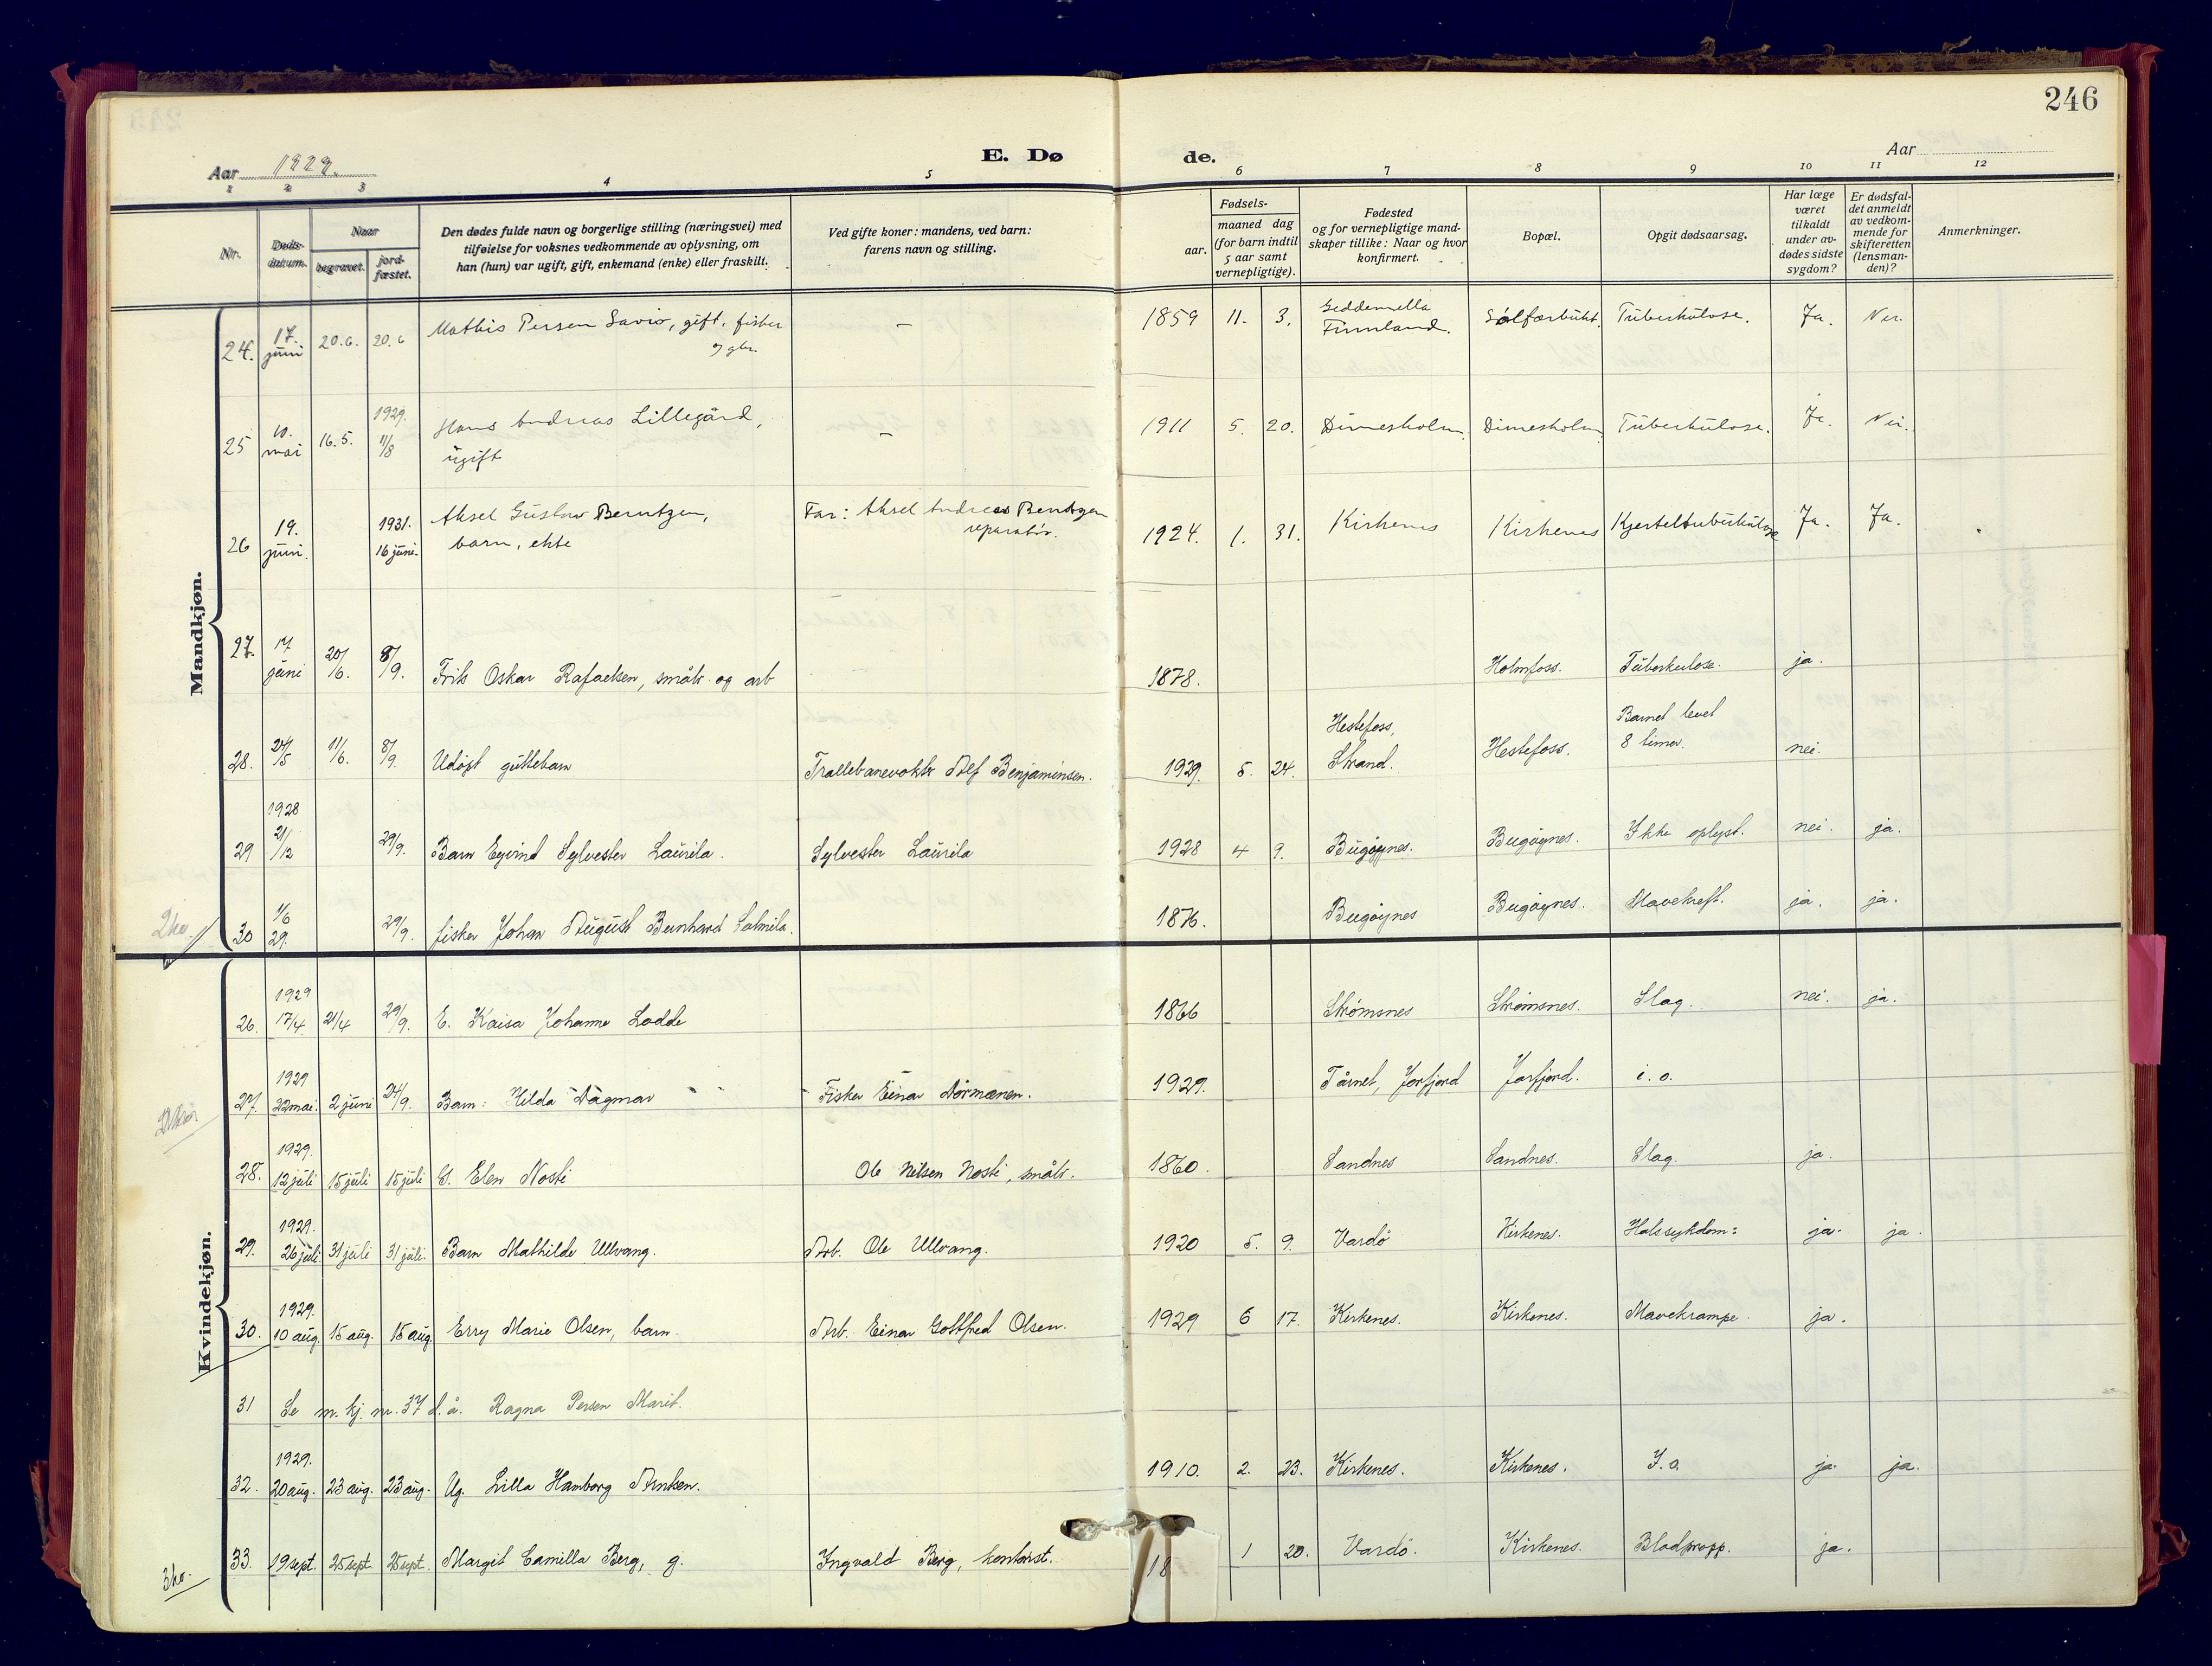 246
Aar 1929.
E. Dø de.
Aar
1 2 3 4 5 6 7 8 9 10 11 12
Nr.
Døds-datum.
Naar
begravet.
jord-fæstet.
Den dødes fulde navn og borgerlige stilling (næringsvei) med
tilføielse for voksnes vedkommende av oplysning, om
han (hun) var ugift, gift, enkemand (enke) eller fraskilt.
Ved gifte koner: mandens, ved barn:
farens navn og stilling.
Fødsels-
aar.
maaned dag
(for barn indtil
5 aar samt
vernepligtige).
Fødested
og for vernepligtige mand-
skaper tillike: Naar og hvor
konfirmert.
Bopæl.
Opgit dødsaarsag.
Har læge
været
tilkaldt
under av-
dødes sidste
sygdom?
Er dødsfal-
det anmeldt
av vedkom-
mende for
skifteretten
(lensman-
den)?
Anmerkninger.
Mandkjøn.
24. 17. juni 20.6. 20.6 Mathis Persen Savio, gift, fisker og gbr. – 1859 11. 3. Finnland. Tuberkulose. Ja. Nei.
25 10. mai 16.5. 1929. 11/8 Hans Andreas Lillegård, ugift – 1911 5. 20. Dirnesholm. Dirnesholm. Tuberkulose. Ja. Nei.
26 19. juni. 1931. 16 juni. Aksel Gustav Berntzen, barn, ekte Far: Aksel Andreas Berntzen reparatör. 1924. 1. 31. Kirkenes Kirkenes Kjerteltuberkulose Ja. Ja.
27. 17 juni 20/6. 8/9. Frits Oskar Rafaelsen, småbr. og arb 1878. Holmfoss. Tuberkulose. ja.
28. 24/5 11/6. 8/9. Udöpt guttebarn Trallebanevokter Alf Benjaminsen. 1929. 5. 24. Hestefoss, Strand. Hestefoss. Barnet levet 8 timer. nei.
29 1928 21/12 29/9. Barn Eyvind Sylvester Laurila. Sylvester Laurila 1928 4 9. Bugöynes. Bugöynes. Ikke oplyst. nei. ja.
30 1/6 29. 29/9. fisker Johan August Bernhard Salmila. 1876. Bugöynes Bugöynes. Mavekreft. ja. ja.
Kvindekjøn.
26. 1929 17/4. 21/4 29/9. E. Kaisa Johanne Lodde 1866 Strömsnes Strömsnes. Slag. nei. ja.
27. 1929 22 mai. 2 juni 24/9. Barn: Hilda Dagmar Fisker Einar Dørmænen. 1929. Tårnet, Jarfjord Jarfjord. i.o.
28. 1929. 12 juli 15 juli 15 juli G. Elen Nosti Ole Nilsen Nosti, småbr. 1860. Sandnes Sandnes. Slag. ja.
29. 1929. 26 juli. 31 juli 31 juli. Barn Mathilde Ullvang. Arb. Ole Ullvang. 1920 5. 9. Vardö Kirkenes. Halssykdom: ja. ja.
30. 1929. 10 aug. 15 aug. 15 aug. Erry Marie Olsen, barn. Arb. Einar Gottfred Olsen. 1929 6 17. Kirkenes. Kirkenes. Mavekrampe. ja.
31 Se m. kj. nr. 37 d. å. Ragna Persen Marit.
32. 1929. 20 aug. 23 aug. 23 aug. Ug. Lilla Hamborg Arntsen. 1910. 2. 23. Kirkenes. Kirkenes. I.o. ja. ja.
33. 19 sept. 25 sept. 25 sept. Margit Camilla Berg, g. Ingvald Berg, kontorist. 18 1 20. Vardö. Kirkenes. Blodpropp. ja.